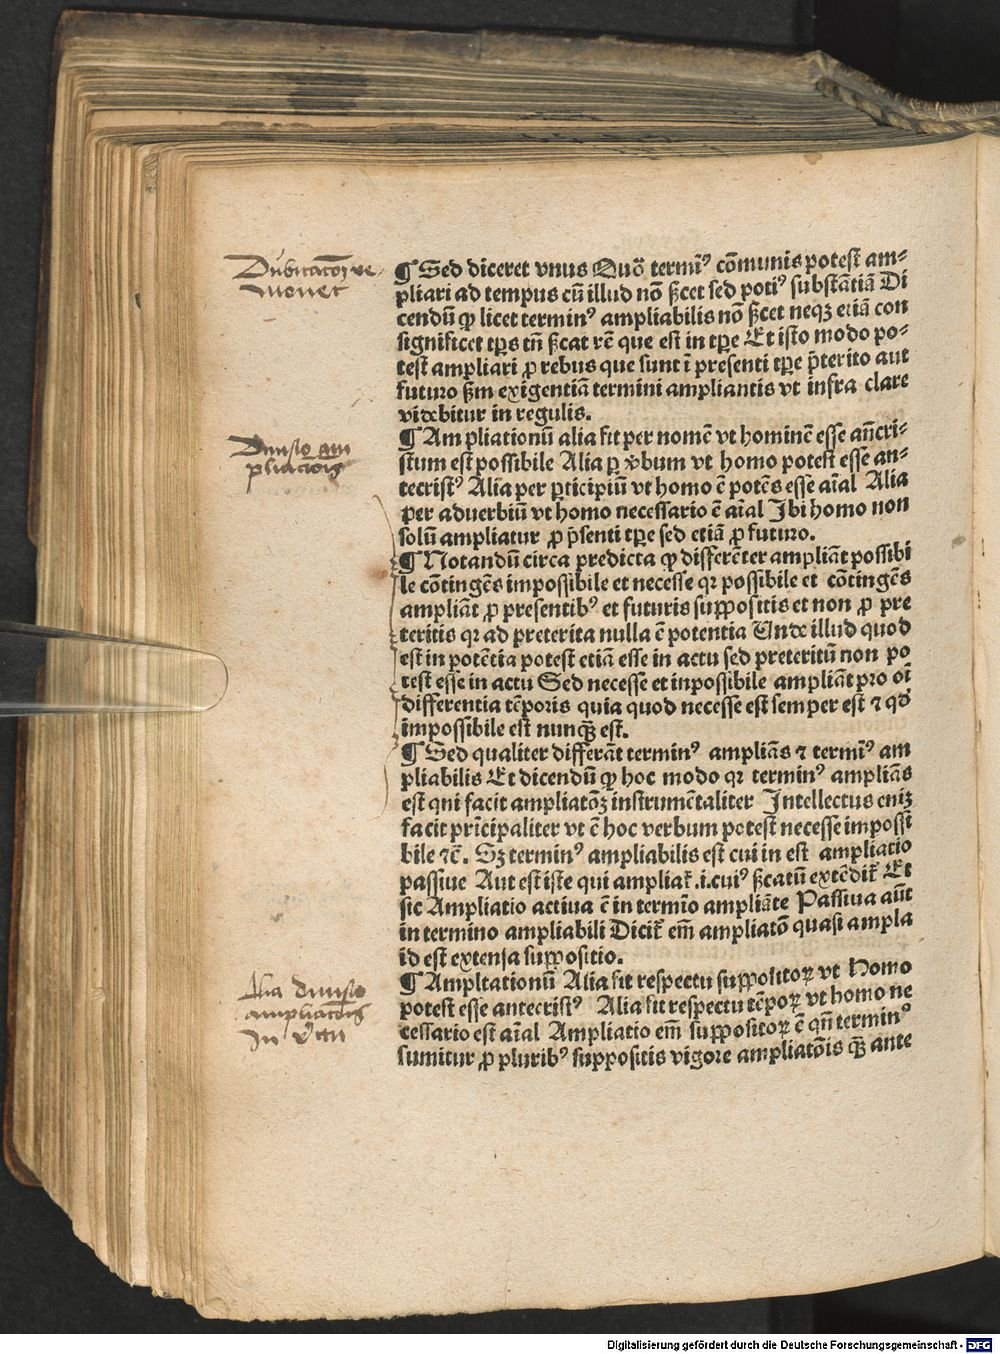 Dubitatōꝫ re
mouet
¶ Sed diceret vnus Quō termīꝰ cōmunis potest am⸗
pliari ad tempus cū illud nō ßcet sed potiꝰ substātiā Di
cendū ꝙ licet terminꝰ ampliabilis nō ßcet neqꝫ etiā con
significet tp̄s tn̄ ßcat rē que est in tp̄e Et isto modo po⸗
test ampliari ꝓ rebus que sunt ī presenti tp̄e p̄terito aut
futuro ßm exigentiā termini ampliantis vt infra clare
videbitur in regulis.
Diuisio am
pliationis
¶ Ampliationū alia fit per nomē vt hominē esse an̄cri⸗
stum est possibile Alia ꝑ v̄bum vt homo potest esse an⸗
tecristꝰ Alia per ꝑticipiū vt homo ē potēs esse aīal Alia
per aduerbiū vt homo necessario ē aīal Ibi homo non
solū ampliatur ꝓ p̄senti tp̄e sed etiā ꝓ futuro.
¶ Notandū circa predicta ꝙ differēter ampliāt possibi
le cōtingēs impossibile et necesse qꝛ possibile et cōtingēs
ampliāt ꝓ presentibꝰ et futuris suppositis et non ꝓ pre
teritis qꝛ ad preterita nulla ē potentia Unde illud quod
est in potētia potest etiā esse in actu sed preteritū non po
test esse in actu Sed necesse et inpossibile ampliāt pro oī
differentia tēporis quia quod necesse est semper est ⁊ qđ
impossibile est nunq̄ꝫ est.
¶ Sed qualiter differāt terminꝰ ampliās ⁊ termīꝰ am
pliabilis Et dicendū ꝙ hoc modo qꝛ terminꝰ ampliās
est qui facit ampliatōꝫ instrumētaliter Intellectus eniꝫ
facit prīcipaliter vt ē hoc verbum potest necesse impossi
bile ⁊c̄. Sꝫ terminꝰ ampliabilis est cui in est ampliatio
passiue Aut est iste qui ampliat̄ .i.cuiꝰ ßcatū extēdit̄ Et
sic Ampliatio actiua ē in termīo ampliāte Passiua aūt
in termino ampliabili Dicit̄ em̄ ampliatō quasi ampla
id est extensa suppositio.
Alia diuisio
ampliatōnis
¶ Ampltationū Alia fit respectu suppositoꝝ vt Homo
potest esse antecristꝰ Alia fit respectu tēpoꝝ vt homo ne
cessario est aīal Ampliatio em̄ suppositoꝝ ē qn̄ terminꝰ
sumitur ꝓ pluribꝰ suppositis vigore ampliatōis q̄ꝫ ante
Digitalisierung gefördert durch die Deutsche Forschungsgemeinschaft - DFG